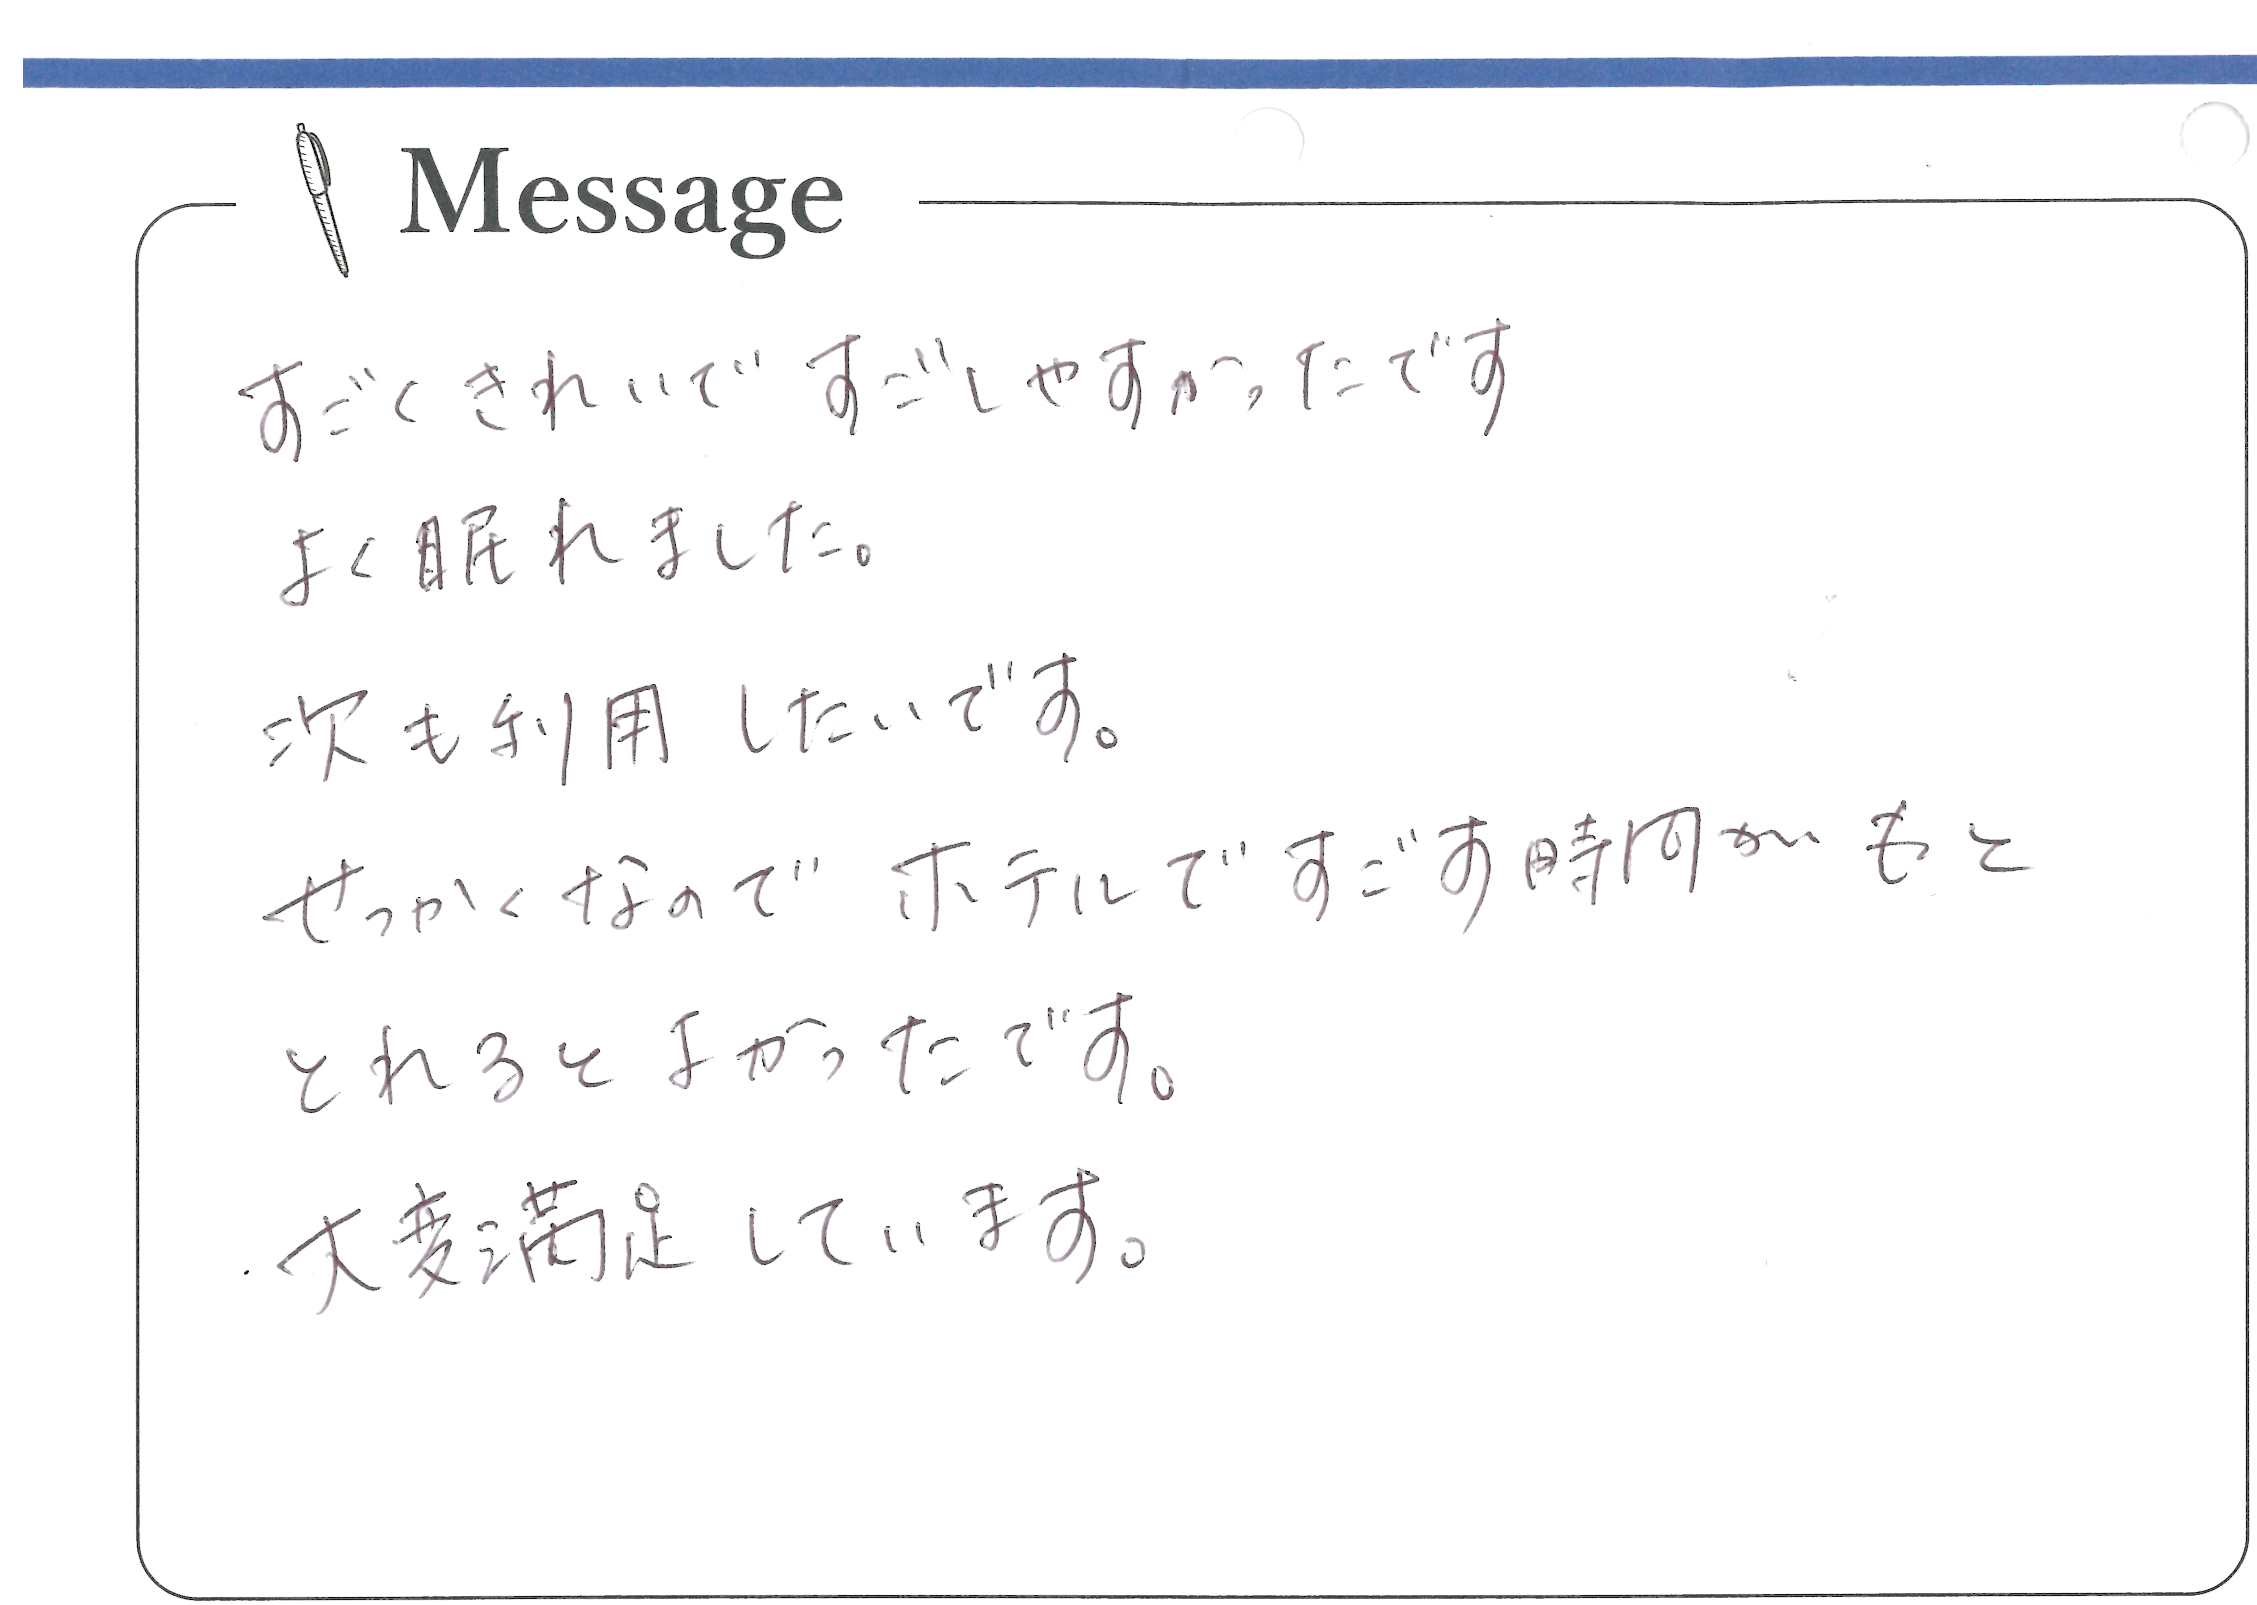 Message
すごくきれいですごしやすかったです
よく眠れました。
次も利用したいです。
せっかくなのでホテルですごす時間がもっと
とれるとよかったです。
大変満足しています。